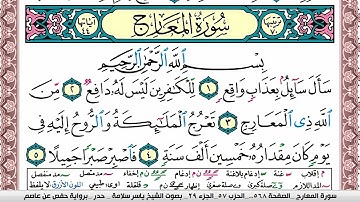 سُورَةُ الْمَعَارِجِ
بِسْمِ اللَّهِ الرَّحْمَٰنِ الرَّحِيمِ
سَأَلَ سَائِلٌ بِعَذَابٍ وَاقِعٍ ١ لِلْكَافِرِينَ لَيْسَ لَهُ دَافِعٌ ٢ مِنَ
اللَّهِ ذِي الْمَعَارِجِ ٣ تَعْرُجُ الْمَلَائِكَةُ وَالرُّوحُ إِلَيْهِ فِي
يَوْمٍ كَانَ مِقْدَارُهُ خَمْسِينَ أَلْفَ سَنَةٍ ٤ فَاصْبِرْ صَبْرًا جَمِيلًا ٥
سورة المعارج _ الصفحة ٥٦٨_ الحزب ٥٧_ الجزء ٢٩ _ بصوت الشيخ ياسر سلامة_ حدر_ برواية حفص عن عاصم